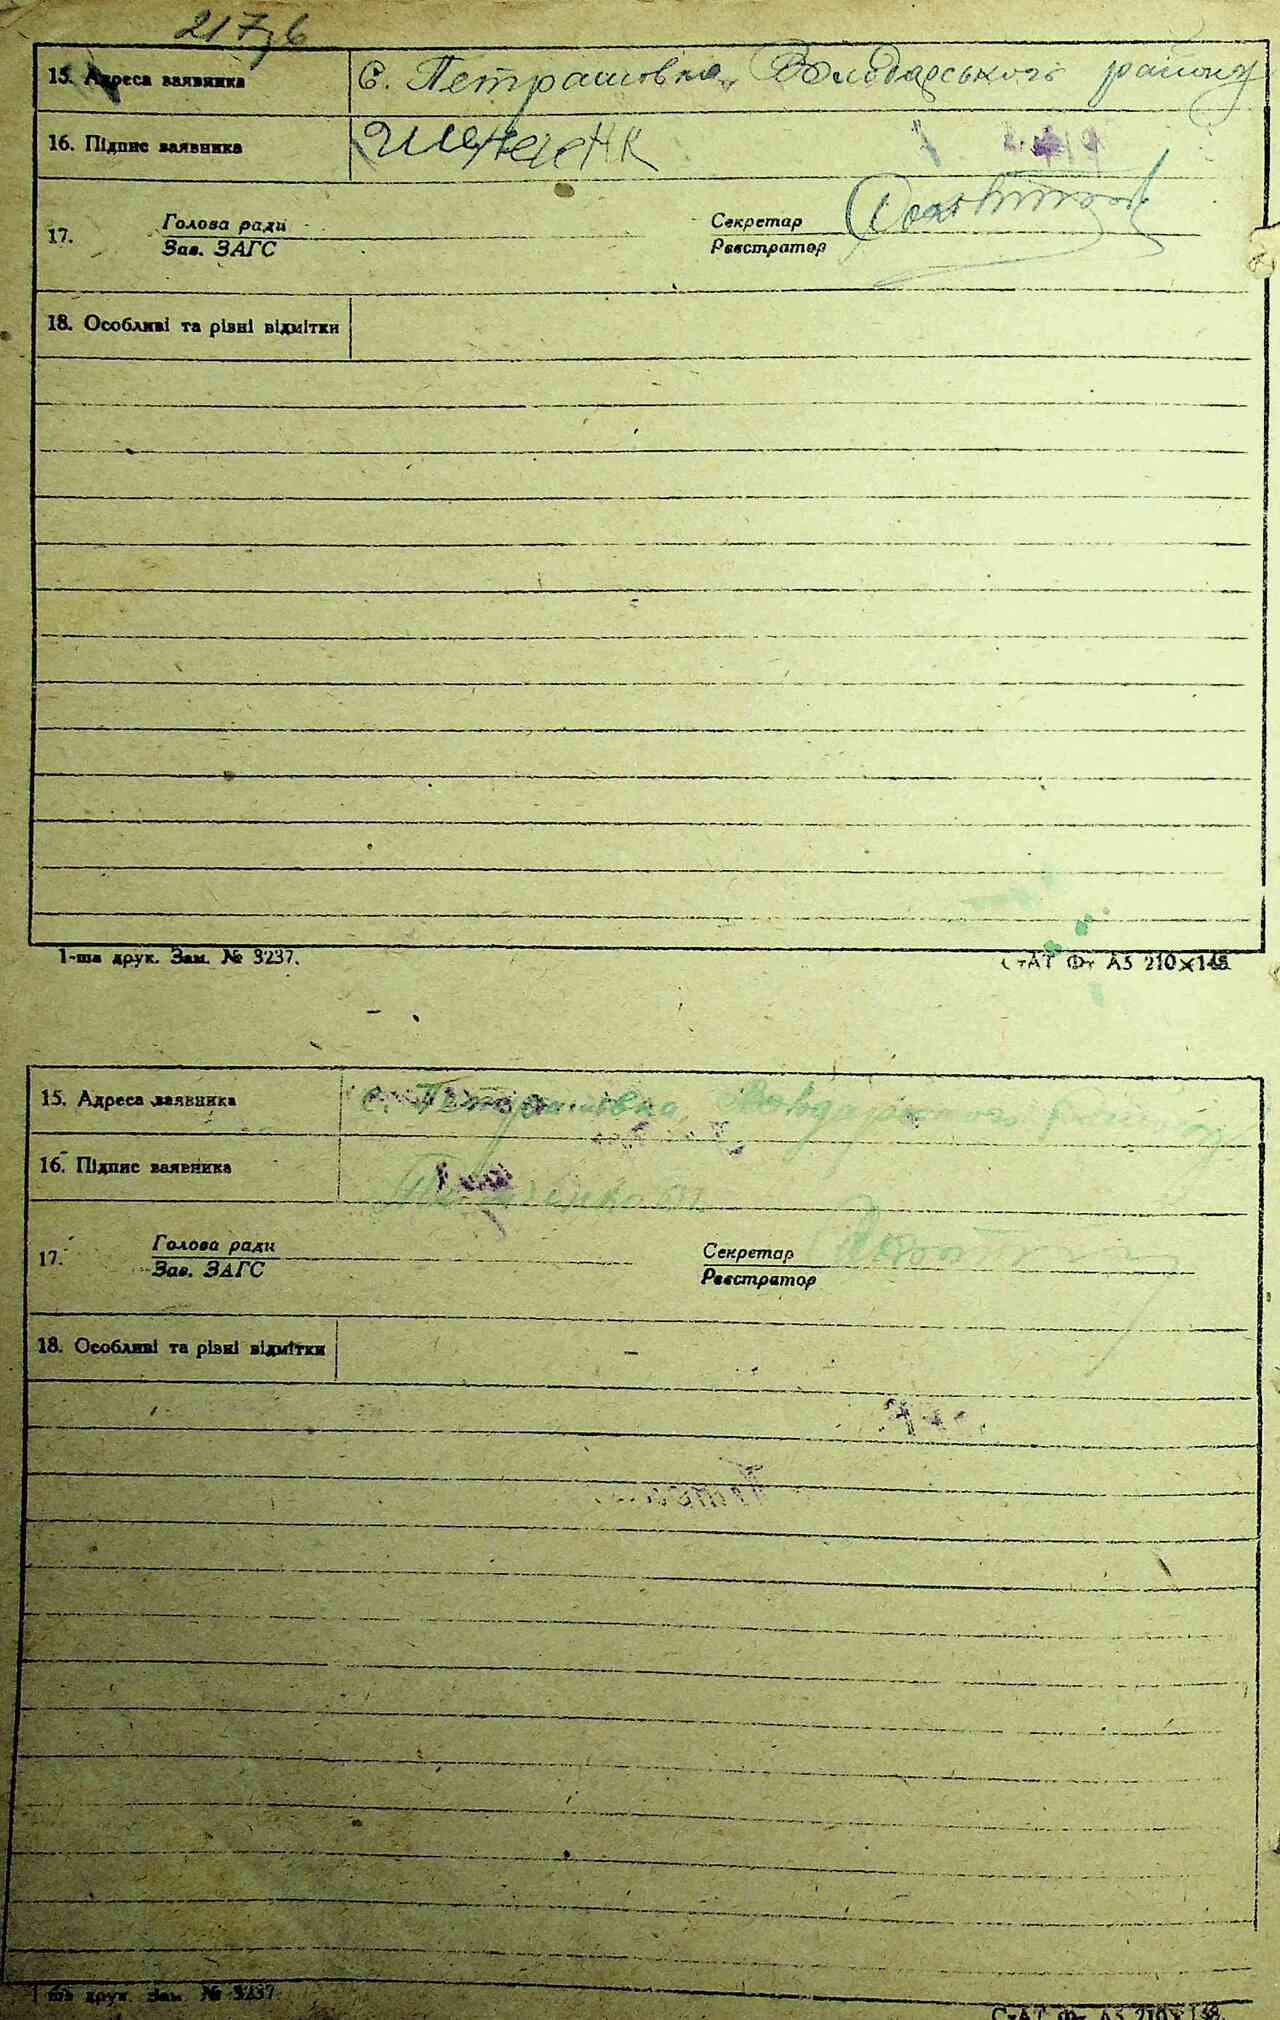 217зв
15. Адреса заявника с. Петрашовка, Володарського району
16. Підпис заявника
17. Голова ради Секретар
Зав. ЗАГС Реєстратор
18. Особливі та різні відмітки
1-ша друк. Зам. № 3237. СтАТ Фт А5 210×148
15. Адреса заявника с. Петрашовка, Володарського району
16. Підпис заявника
17. Голова ради Секретар
Зав. ЗАГС Реєстратор
18. Особливі та різні відмітки
1-ша друк. Зам. № 3237 СтАТ Фт А5 210×148